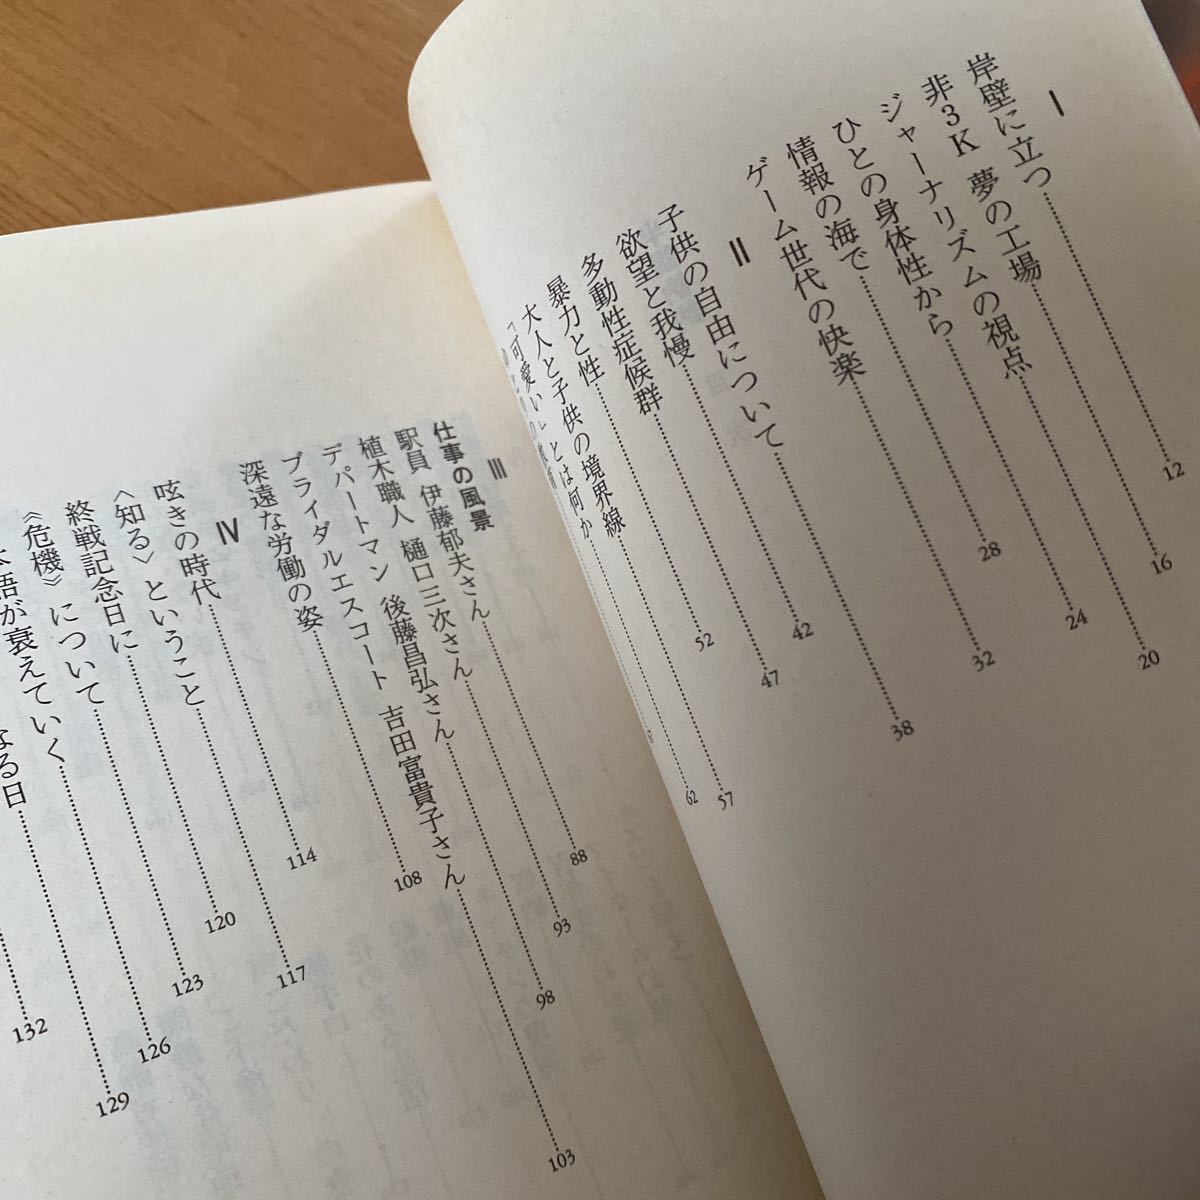 I
岸壁に立つ 12
非3K 夢の工場 16
ジャーナリズムの視点 20
ひとの身体性から 24
情報の海で 28
ゲーム世代の快楽 32
II
子供の自由について 38
欲望と我慢 42
多動性症候群 47
暴力と性 52
大人と子供の境界線 57
「可愛い」とは何か 62
III
仕事の風景
駅員 伊藤郁夫さん 88
植木職人 樋口三次さん 93
デパートマン 後藤昌弘さん 98
ブライダルエスコート 吉田富貴子さん 103
深遠な労働の姿 108
IV
呟きの時代 114
〈知る〉ということ 117
終戦記念日に 120
《危機》について 123
語が衰えていく 126
なる日 129
132